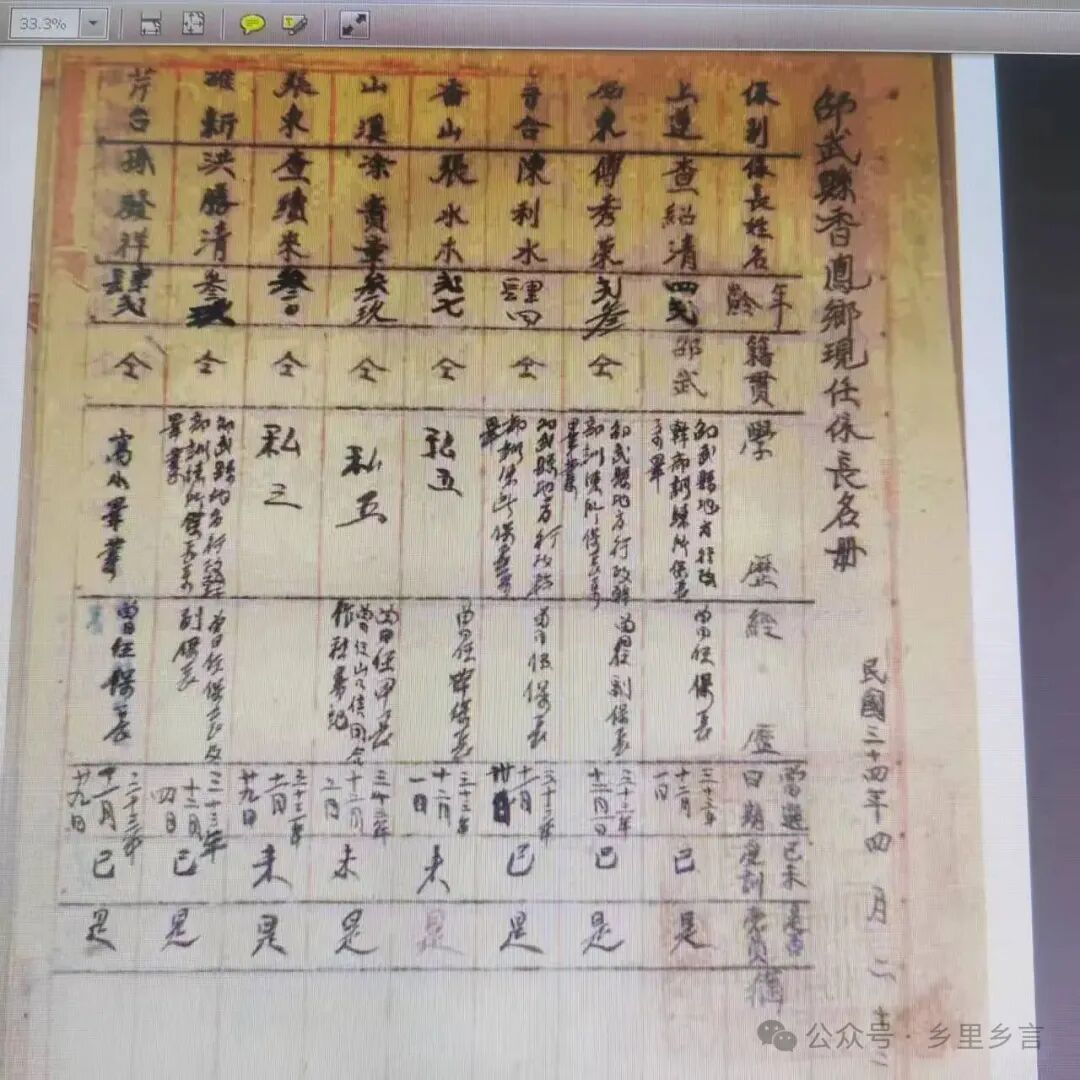 33.3%
邵武縣香鳳鄉現任保長名册
民國三十四年四月二
保別
保長姓名
年齡
籍貫
學歷
經歷
當選日期
已未受訓
是否黨員
備
上連
查紹清
四弍
邵武
邵武縣地方行政
幹部訓練所保長
畢
曾任保長
三十三年
十二月
一日
已
是
傅秀榮
弍叁
仝
邵武縣地方行政幹
部訓練所保長
畢業
曾任副保長
三十三年
十二月一日
已
是
陳利水
肆四
仝
邵武縣地方行政幹
部訓練所保長
畢業
曾任保長
三十三年
十二月
已
是
香山
張水木
弍七
仝
私五
曾任
保長
三十三年
十二月
一日
未
是
山溪
涂貴
叁玖
仝
私五
曾任保甲長
曾任山
作社
三十三年
十二月
未
是
東
查績來
叁
仝
私三
三十三年
十二月
廿九日
未
是
新
洪勝清
叁玖
仝
邵武縣地方行政幹
部訓練所保長
畢業
曾任保長及
副保長
三十三年
十二月
四日
已
是
芹台
孫發祥
肆弍
仝
高小畢業
曾任保長
三十三年
十一月
廿九日
已
是
公众号 · 乡里乡言